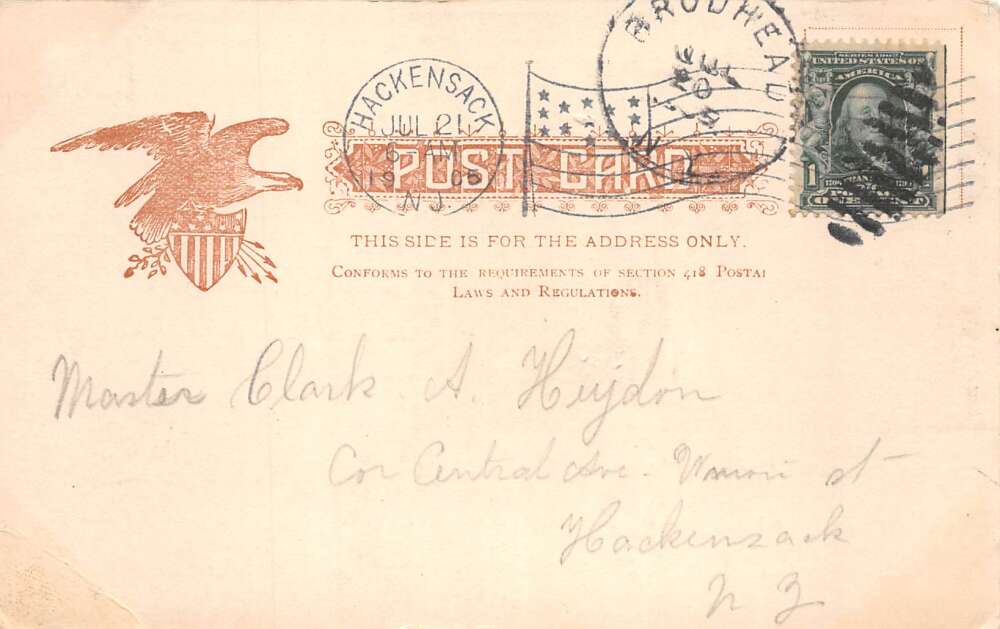 BRODHEAD
JUL
20
N.Y.
HACKENSACK
JUL 21
AM
19 05
N.J.
SERIES 1902
UNITED STATES OF
AMERICA
1
POST CARD
THIS SIDE IS FOR THE ADDRESS ONLY.
CONFORMS TO THE REQUIREMENTS OF SECTION 418 POSTAL
LAWS AND REGULATIONS.
Master Clark A. Heydon
Cor Central Ave. Union st
Hackensack
N J